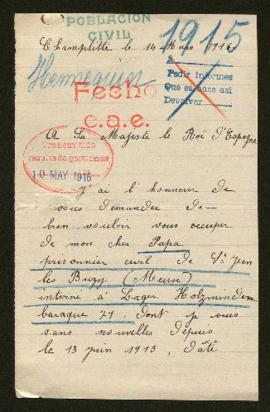 POBLACION
CIVIL
1915
Champlitte, le 14 Mars 1916
Hennequin
A
Pedir informes
Que se hace así
Devolver
Fecho
c.a.e.
A Sa Majesté le Roi d'Espagne
Transmitido
resultado gestiones
10 MAY 1916
J'ai l'honneur de
vous demander de
bien vouloir vous occuper
de mon cher Papa
prisonnier civil de St Jean
les Buzy (Meuse)
interné à Lager Holzminden
baraque 71. dont je suis
sans nouvelles depuis
le 13 juin 1915, date